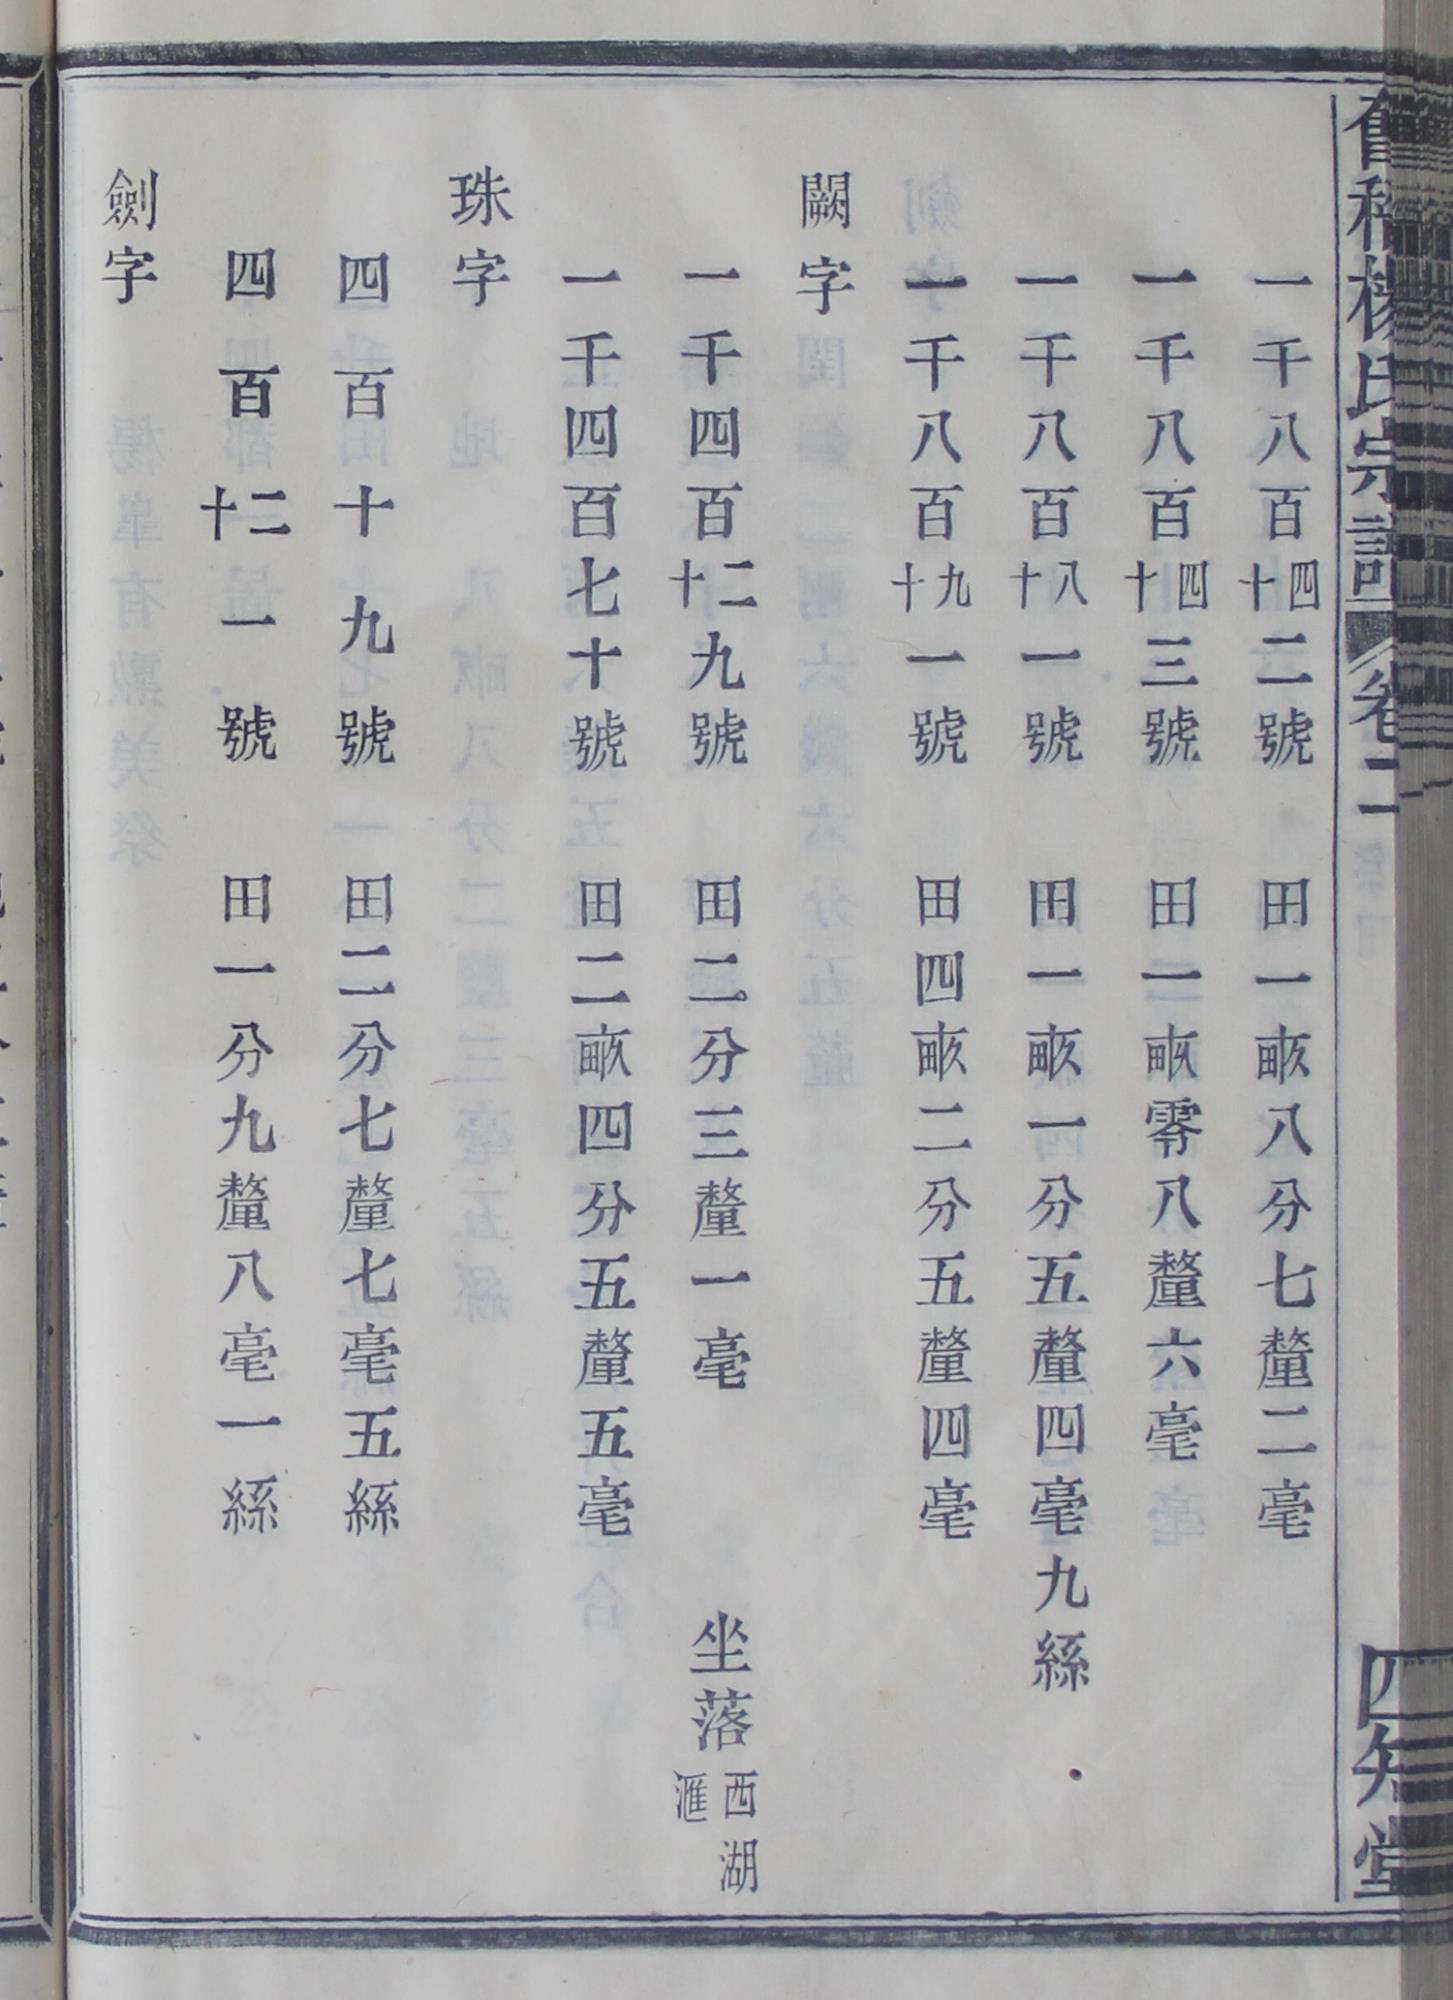 楊氏宗譜 卷二 四知堂
一千八百四十二號 田一畞八分七釐二毫
一千八百四十三號 田一畞零八釐六毫
一千八百八十一號 田一畞一分五釐四毫九絲
一千八百九十一號 田四畞二分五釐四毫
闕字
一千四百二十九號 田二分三釐一毫 坐落西湖滙
一千四百七十號 田二畞四分五釐五毫
珠字
四百四十九號 田二分七釐七毫五絲
四百二十一號 田一分九釐八毫一絲
劍字